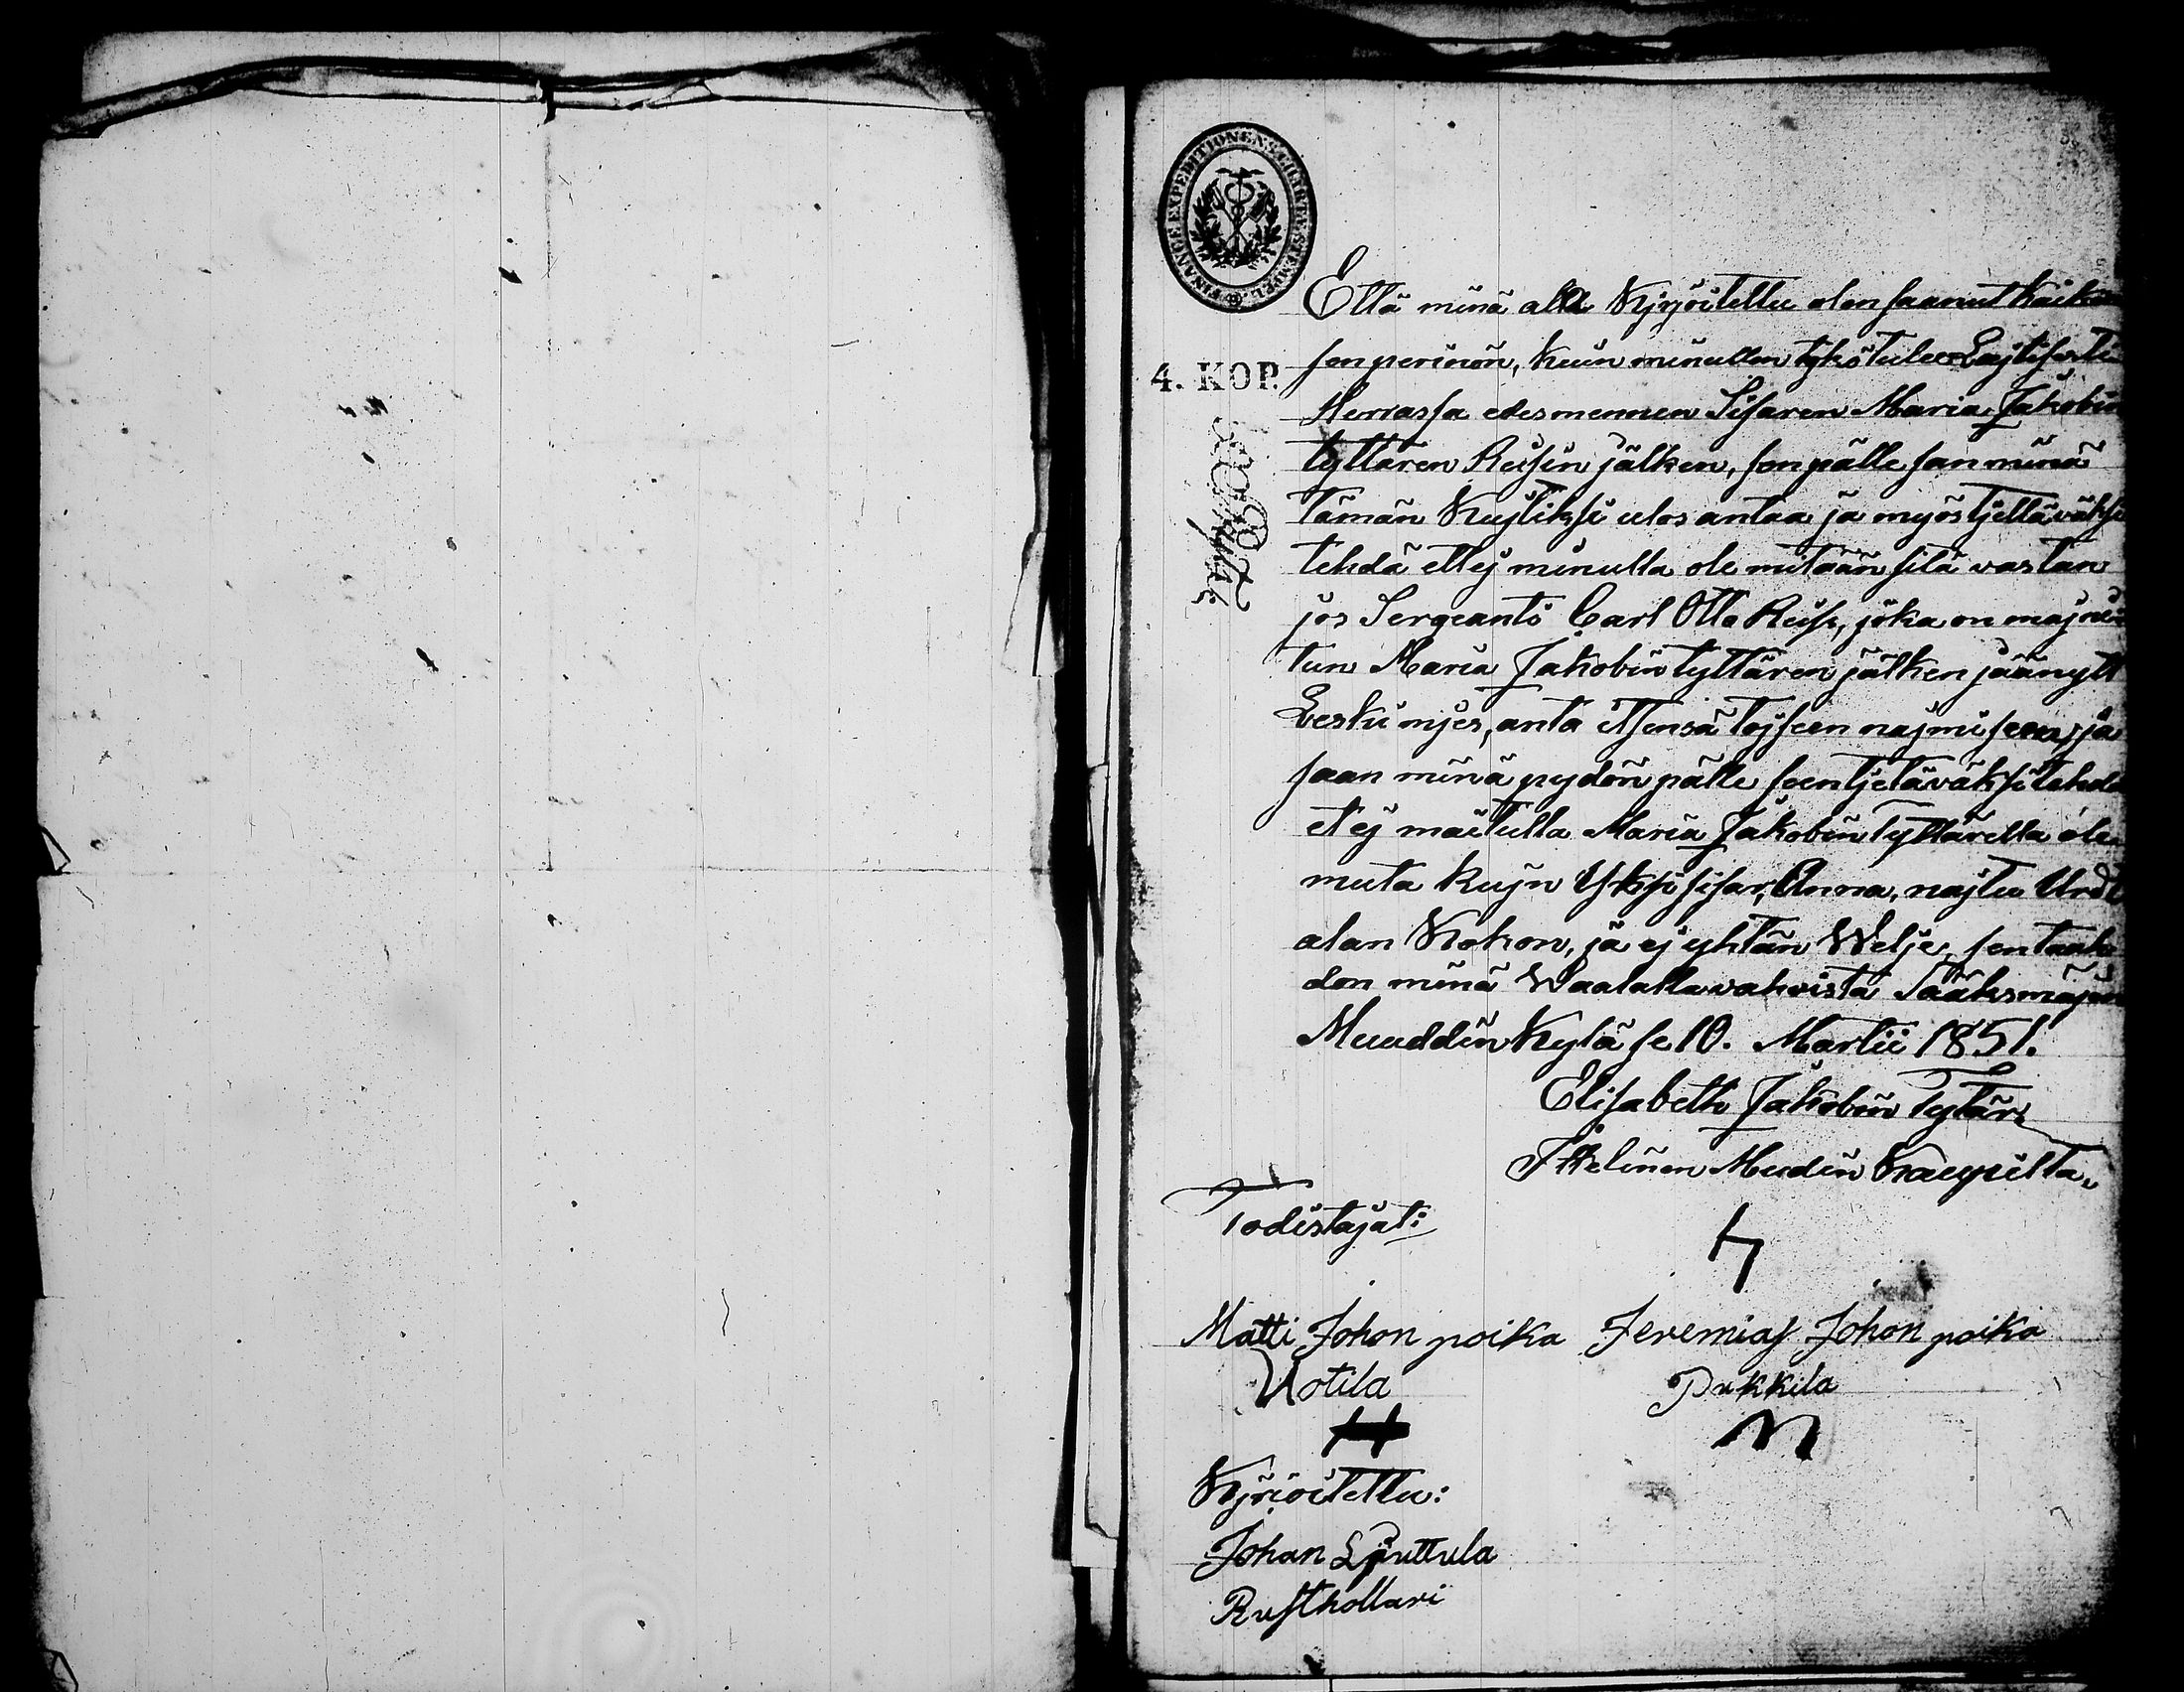 FINANCE EXPEDITIONENS CHARTÆ STEMPEL.
4. KOP.
Että minä alla Kirjoitettu olen saanut Kaiken
sen perinön, kuin minullen tykö tulee
Herrassa edesmennen Sisaren Maria Jakobin
tyttären Reusin jälken, sen pälle san minä
tämän Kujtiksi ulos antaa ja myös tjettäväksi
tehdä ettej minulla ole mitään sitä vastan
jos Sergeanti Carl Otto Reuse, joka on majni
tun Maria Jakobin tyttären jälken jäänytt
Leski mjes, anta itsensä tojseen najmiseen, ja
saan minä pydön pälle seen tjetäväksi tehdä
et ej maitulla Maria Jakobin tyttärella ole
muta kujn Yksi sisar, Anna, najtu Urdi
alan Kokon, ja ej yhtän Welje, sen taah
don minä Waalalla vahvista Sääksmäjen
Muuddin Kylä se 10. Martii 1851.
Elisabeth Jakobin Tytär
Itkelinen Mudin Kaupilta.
Todistajat:
Matti Johon poika Jeremias Johon poika
Uotila Pukkila
Kjrioitettu:
Johan Ljuttula
Rusthollari